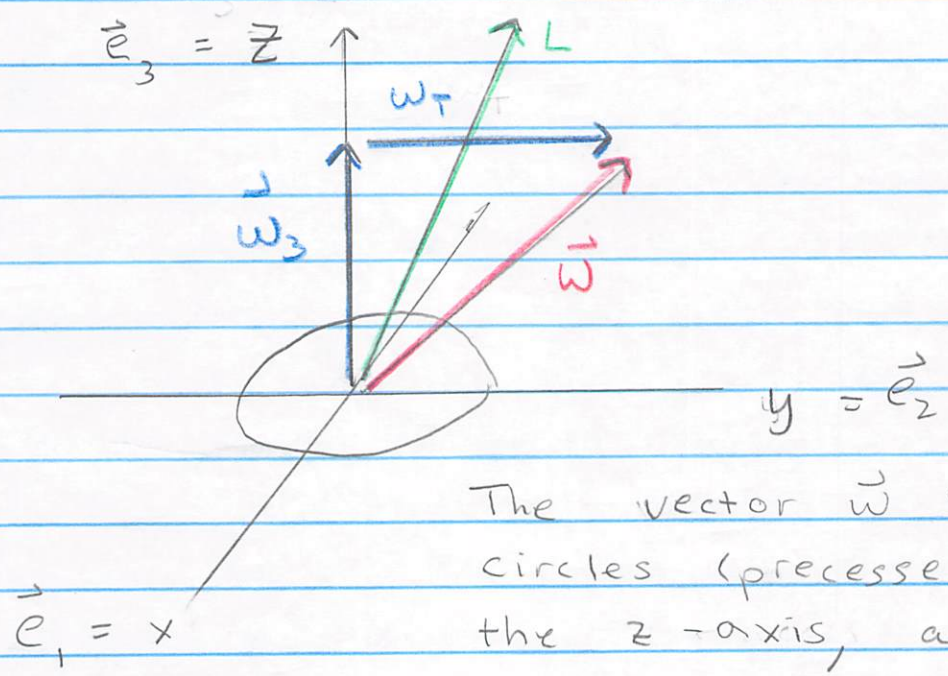 e⃗₃ = z
L
ω_T
ω⃗₃
ω⃗
y = e⃗₂
The vector ω⃗
circles (precesse
the z-axis, a
e⃗₁ = x